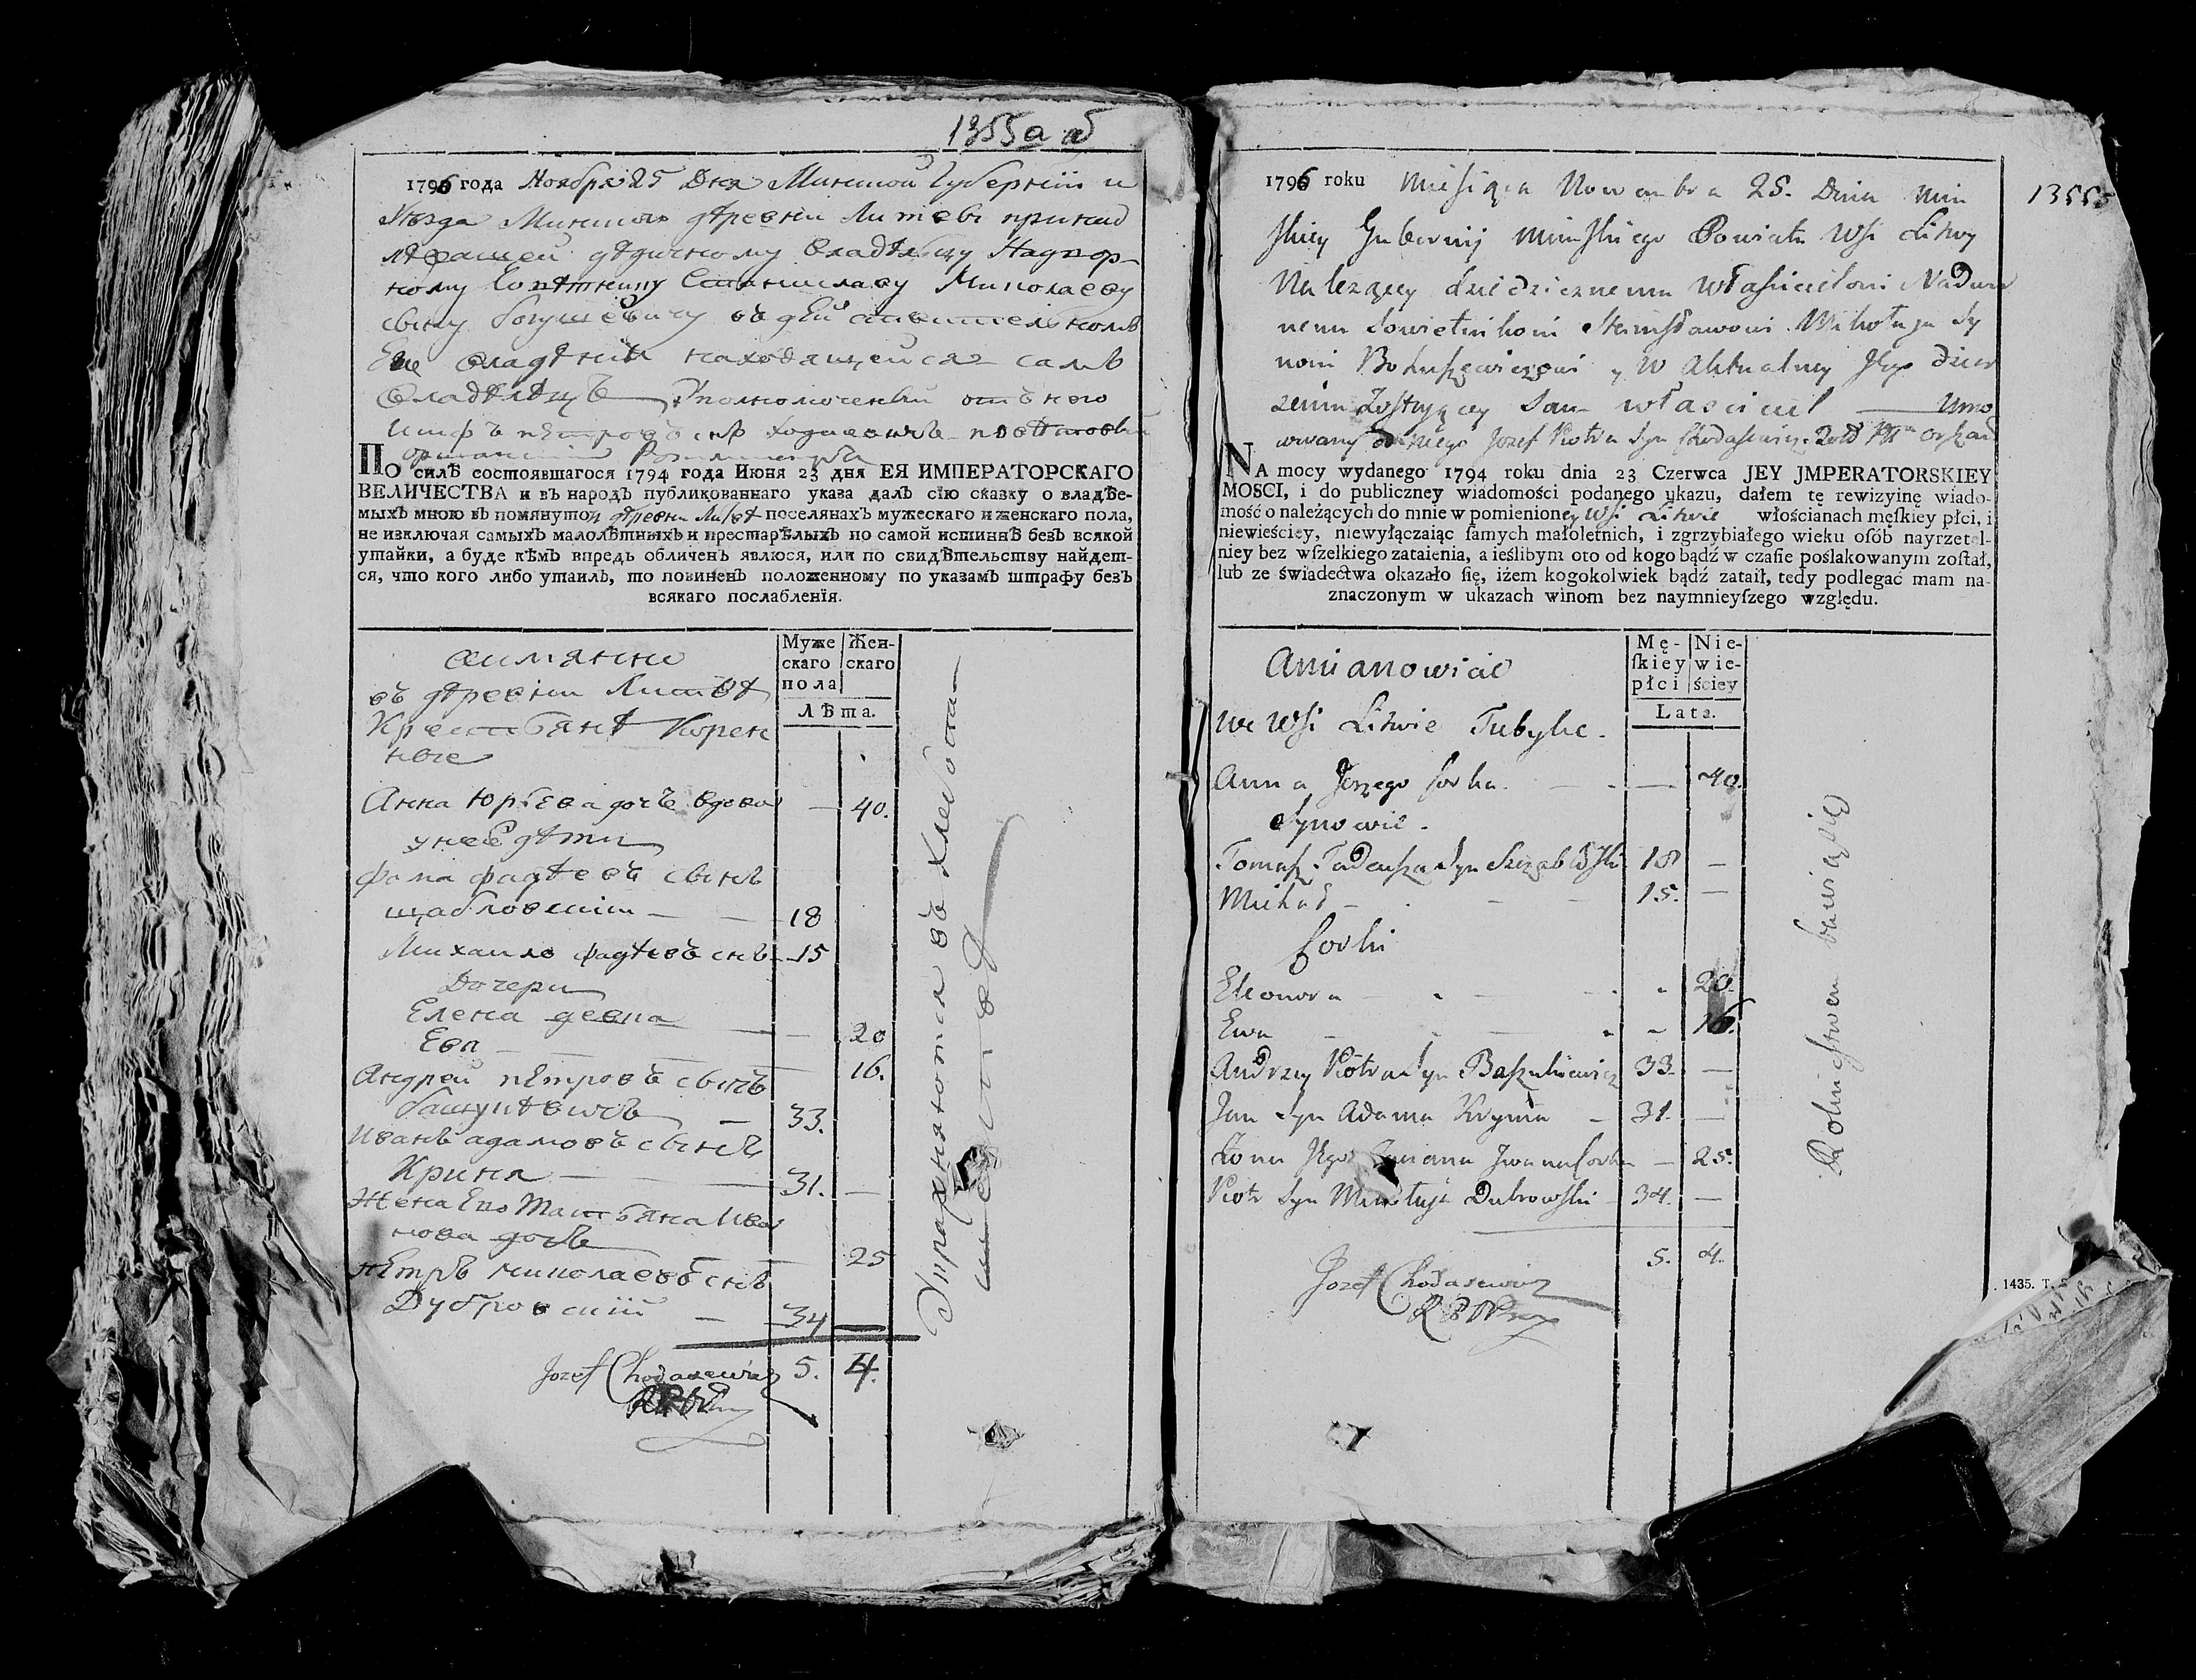 1355 а б
1796 года Ноября 25 Дня Минской Губернии и
Уезда Минскаго дѣревни Литвы принад
лѣжащей дѣдичному владѣльцу Надвор-
ному Совѣтнику Станиславу Миколаеву
сыну Богушевичу въ дѣйствительномъ
Ево владѣнии находящейся самъ
владѣлецъ Уполномоченный отъ него
Иосифъ пѣтровъ снъ Ходасевичъ
ПО силѣ состоявшагося 1794 года Июня 23 дня ЕЯ ИМПЕРАТОРСКАГО
ВЕЛИЧЕСТВА и въ народъ публикованнаго указа далъ сїю сказку о владѣе-
мыхъ мною въ помянутой дѣревни Литвѣ поселянахъ мужескаго и женскаго пола,
не изключая самыхъ малолѣтныхъ и престарѣлыхъ по самой истиннѣ безъ всякой
утайки, а буде кѣмъ впредь обличенъ явлюся, или по свидѣтельству найдет-
ся, что кого либо утаилъ, то повиненъ положенному по указамъ штрафу безъ
всякаго послабленїя.
Муже
скаго
пола
Жен-
скаго
Лѣта.
аимянно
въ дѣревни Литвѣ
Крестьянѣ Корен
ные
Анна Юрьева дочь вдова — 40.
у нее дѣти
Фама фадѣевъ сынъ
щабловский — — 18
Михаило фадѣевъ снъ 15
Дочери
Елена девка — 20
Ева — 16.
Андрей пѣтровъ сынъ
башукѣвичъ — 33.
Иванъ адамовъ сынъ
Крина — 31. —
Жена Ево Татьяна Ива
нова дочь — 25
пѣтръ миколаевъ снъ
Дубровский — 34 —
5. 4.
Jozef Chodasewicz
Упражняются въ хлебопа
шестве
13555
1796 roku Miesiąca Nowembra 25. Dnia Min
skiey Gubernij Minskiego Powiatu Wsi Litwy
Należącey dziedzicznemu Własicielowi Nadwor
nemu Sowietnikowi Stanisławowi Mikołaja Sy
nowi Bohuszewiczowi y w Aktualney Jego dzier
żeniu Zostającey Sam właściciel — Umo
cowany od Niego Jozef Piotra Syn Chodasiewicz
NA mocy wydanego 1794 roku dnia 23 Czerwca JEY JMPERATORSKIEY
MOSCI, i do publiczney wiadomości podanego ukazu, dałem tę rewizyinę wiado-
mość o należących do mnie w pomienioney Wsi Litwie włościanach męſkiey płci, i
niewieściey, niewyłączaiąc ſamych małoletnich, i zgrzybiałego wieku osób nayrzetel-
niey bez wſzelkiego zataienia, a ieślibym oto od kogo bądź w czaſie poślakowanym zoſtał,
lub ze świadectwa okazało ſię, iżem kogokolwiek bądź zataił, tedy podlegać mam na-
znaczonym w ukazach winom bez naymnieyſzego względu.
Mę-
ſkiey
płci
Nie-
wie-
ściey
Lata.
Amianowicie
we Wsi Litwie Tubylce.
Anna Jerzego Corka. — — 40.
Synowie.
Tomasz Tadeusza Syn Szczablowski 18 —
Michał — 15. —
Corki
Eleonora — 20.
Ewa — 16.
Andrzey Piotra Syn Baszukiewicz 33. —
Jan Syn Adama Krynia — 31. —
Żona Jego Taciana Jwana Corka — 25.
Piotr Syn Mikołaja Dubrowski 34. —
5. 4.
Jozef Chodasewicz
Rolnictwem bawią się
1435. T.